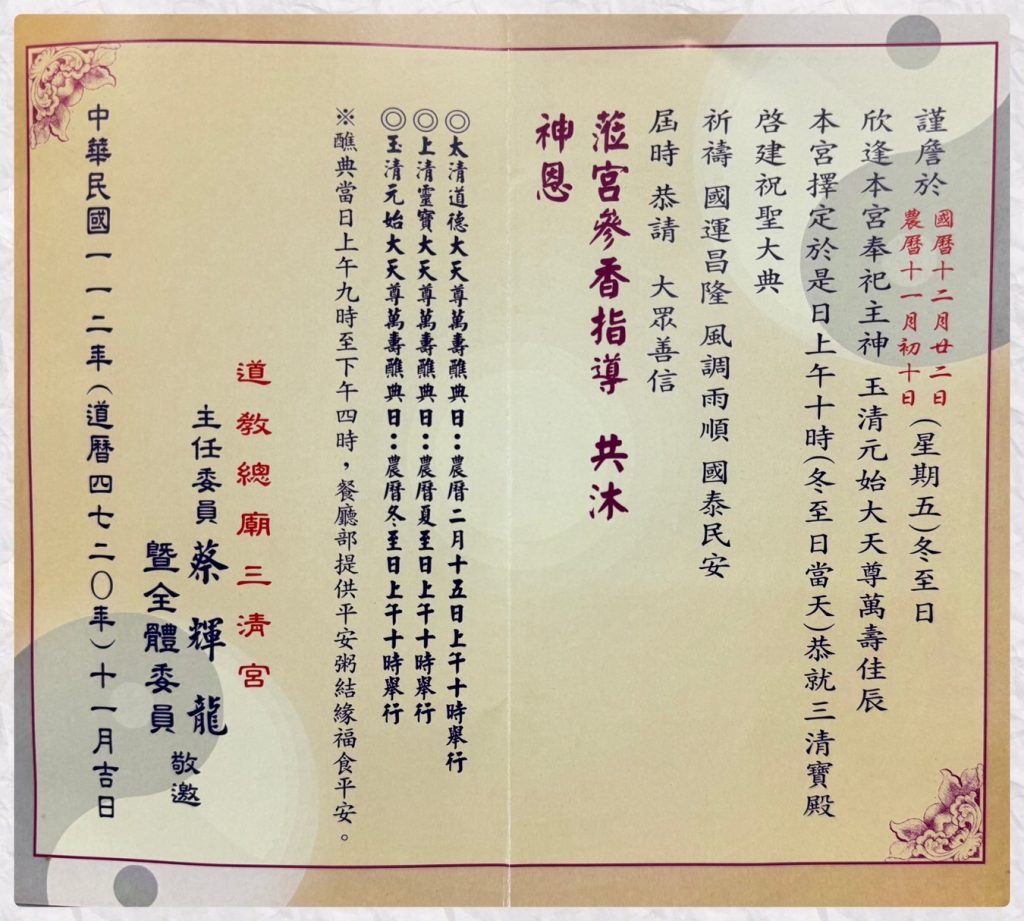 謹詹於 國曆十二月廿二日 農曆十一月初十日 (星期五)冬至日
欣逢本宮奉祀主神 玉清元始大天尊萬壽佳辰
本宮擇定於是日上午十時(冬至日當天)恭就三清寶殿
啓建祝聖大典
祈禱 國運昌隆 風調雨順 國泰民安
屆時 恭請 大眾善信
蒞宮參香指導 共沐
神恩
◎太清道德大天尊萬壽醮典日：農曆二月十五日上午十時舉行
◎上清靈寶大天尊萬壽醮典日：農曆夏至日上午十時舉行
◎玉清元始大天尊萬壽醮典日：農曆冬至日上午十時舉行
※醮典當日上午九時至下午四時，餐廳部提供平安粥結緣福食平安。
道教總廟三清宮
主任委員 蔡輝龍
暨全體委員 敬邀
中華民國一一二年(道曆四七二〇年)十一月吉日